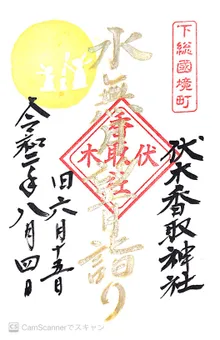 下総國境町
伏木香取神社
水無月詣り
伏木
香取社
旧六月十五日
令和二年八月四日
CamScannerでスキャン